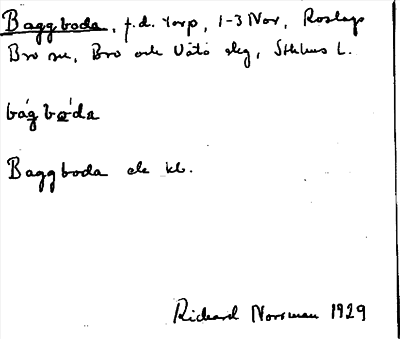 Baggboda, f.d. torp, 1-3 Nor, Roslags
Bro sn, Bro och Vätö skg, Sthlms L.
bágbo̯da
Baggboda ek kb.
Rickard Norrman 1929